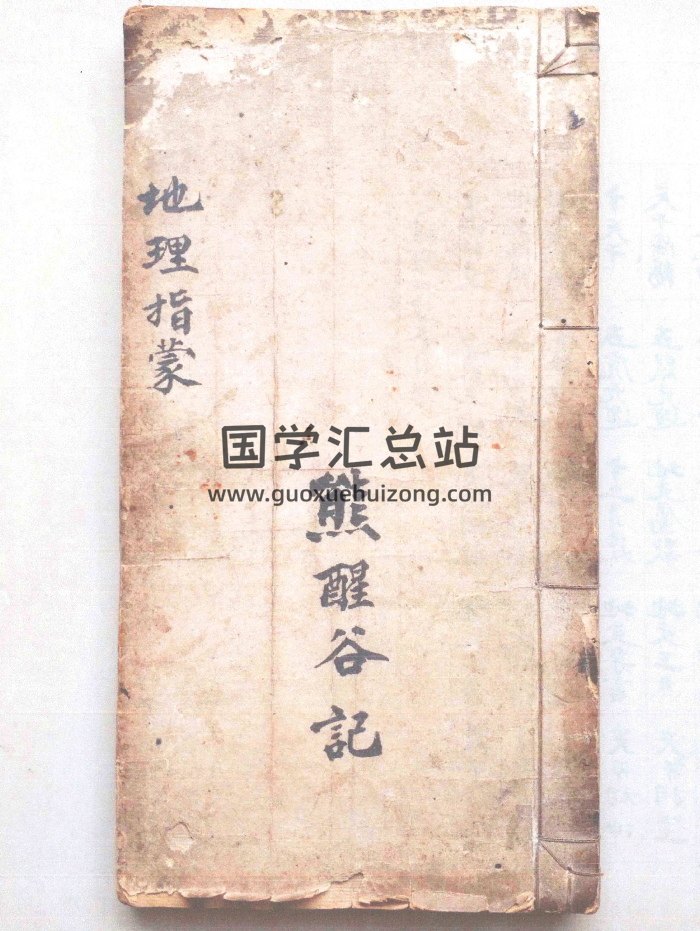 地理指蒙
国学汇总站
www.guoxuehuizong.com
熊醒谷記